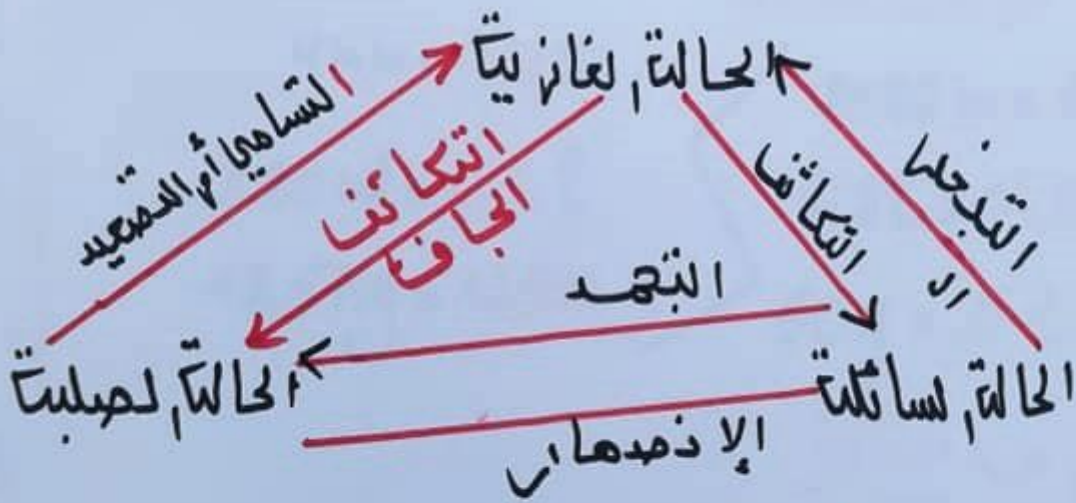 الحالة الغازية
التسامي أو التصعيد
التكاثف
الجاف
التكاثف
التبخر
التجمد
الحالة الصلبة
الحالة السائلة
الإنصهار